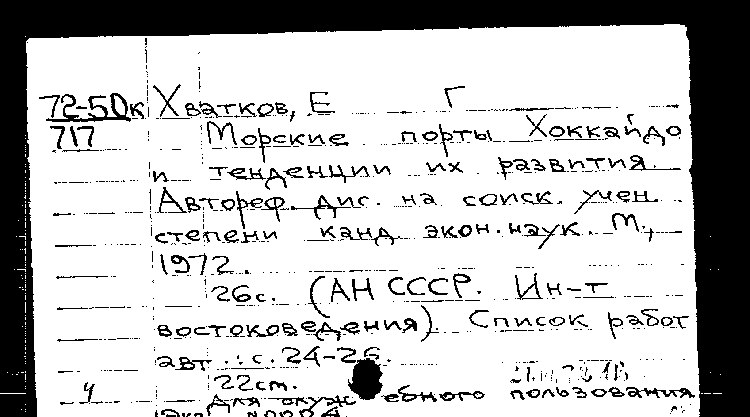 72-50к Хватков, Е Г
717 Морские порты Хоккайдо
и тенденции их развития.
Автореф. дис. на соиск. учен.
степени канд. экон. наук. М.,
1972.
26с. (АН СССР. Ин-т
востоковедения). Список работ
авт.: с. 24-26.
22см.
ч Для служебного пользования
Экз. N0004